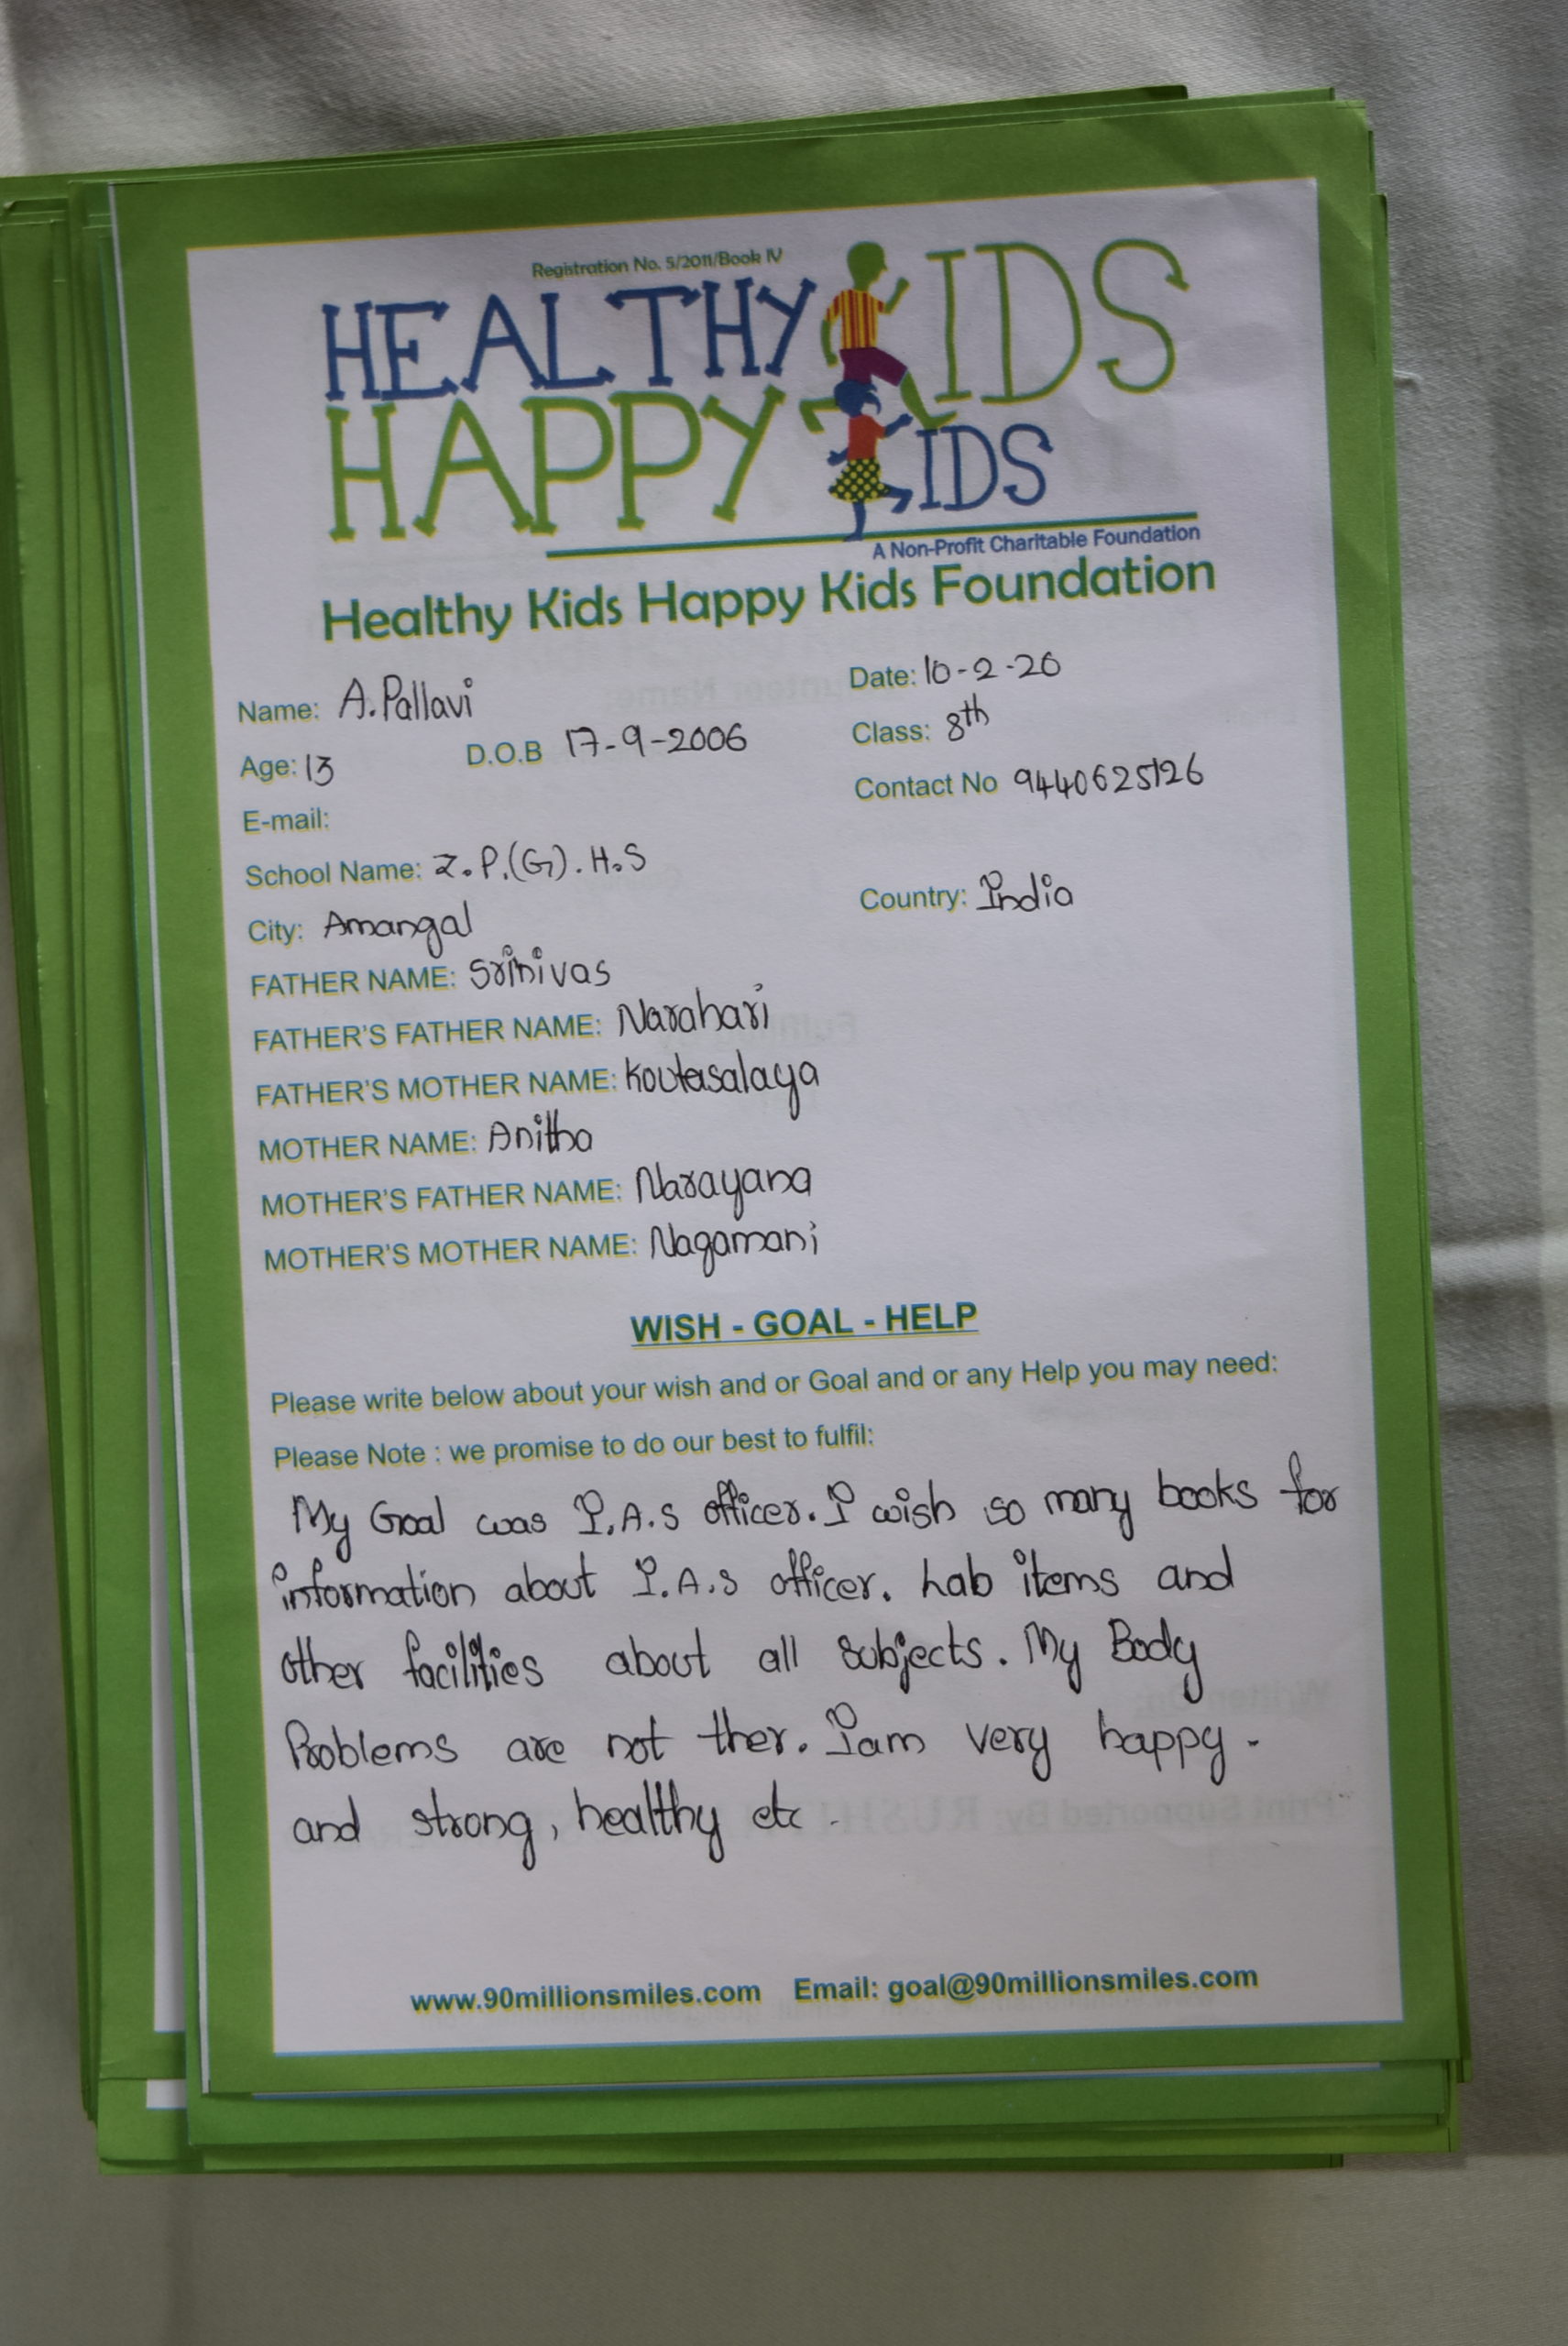 Registration No. 5/2011/Book IV
HEALTHY KIDS
HAPPY KIDS
A Non-Profit Charitable Foundation
Healthy Kids Happy Kids Foundation
Name: A.Pallavi Date: 10-2-20
Age: 13 D.O.B 17-9-2006 Class: 8th
E-mail: Contact No 9440625126
School Name: Z.P.(G).H.S
City: Amangal Country: India
FATHER NAME: Srinivas
FATHER'S FATHER NAME: Narahari
FATHER'S MOTHER NAME:
MOTHER NAME: Anitha
MOTHER'S FATHER NAME: Narayana
MOTHER'S MOTHER NAME: Nagamani
WISH - GOAL - HELP
Please write below about your wish and or Goal and or any Help you may need:
Please Note : we promise to do our best to fulfil:
My Goal was I.A.S officer. I wish so many books for
information about I.A.S officer. Lab items and
other facilities about all subjects. My Body
Problems are not ther. I am very happy.
and strong, healthy etc.
www.90millionsmiles.com Email: goal@90millionsmiles.com